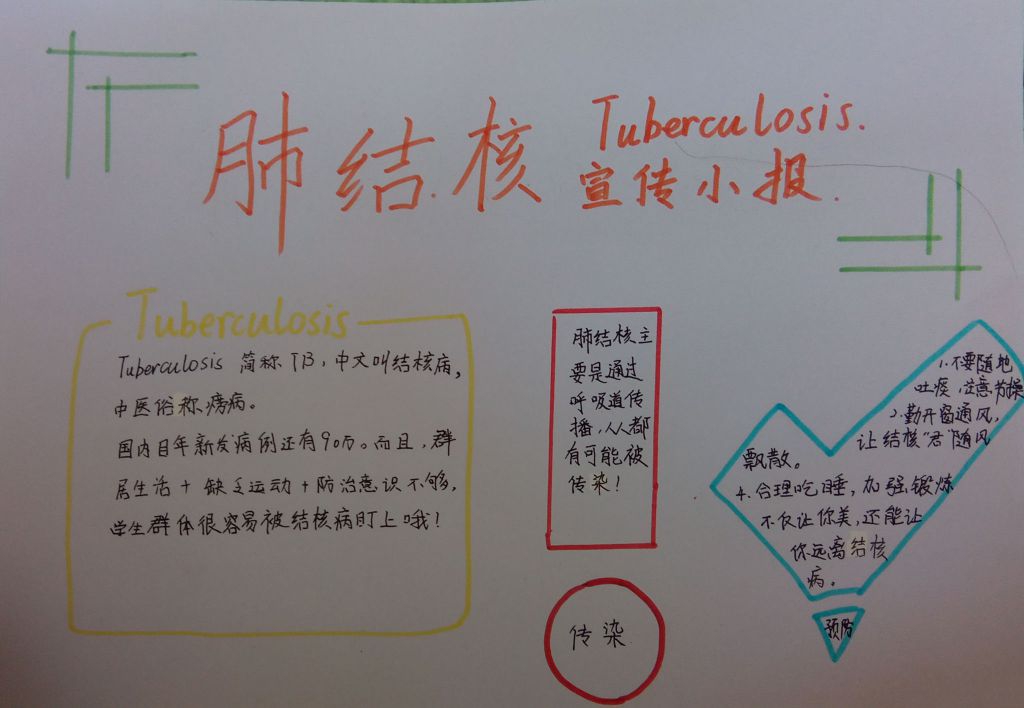 肺结核
Tuberculosis.
宣传小报.
Tuberculosis
Tuberculosis 简称TB，中文叫结核病，
中医俗称痨病。
国内目年新发病例还有90万。而且，群
居生活+缺乏运动+防治意识不够，
学生群体很容易被结核病盯上哦！
肺结核主
要是通过
呼吸道传
播，人人都
有可能被
传染！
传染
1.不要随地
吐痰，注意
2.勤开窗通风，
让结核“君”随风
飘散。
4.合理吃睡，加强锻炼
不仅让你美，还能让
你远离结核
病。
预防